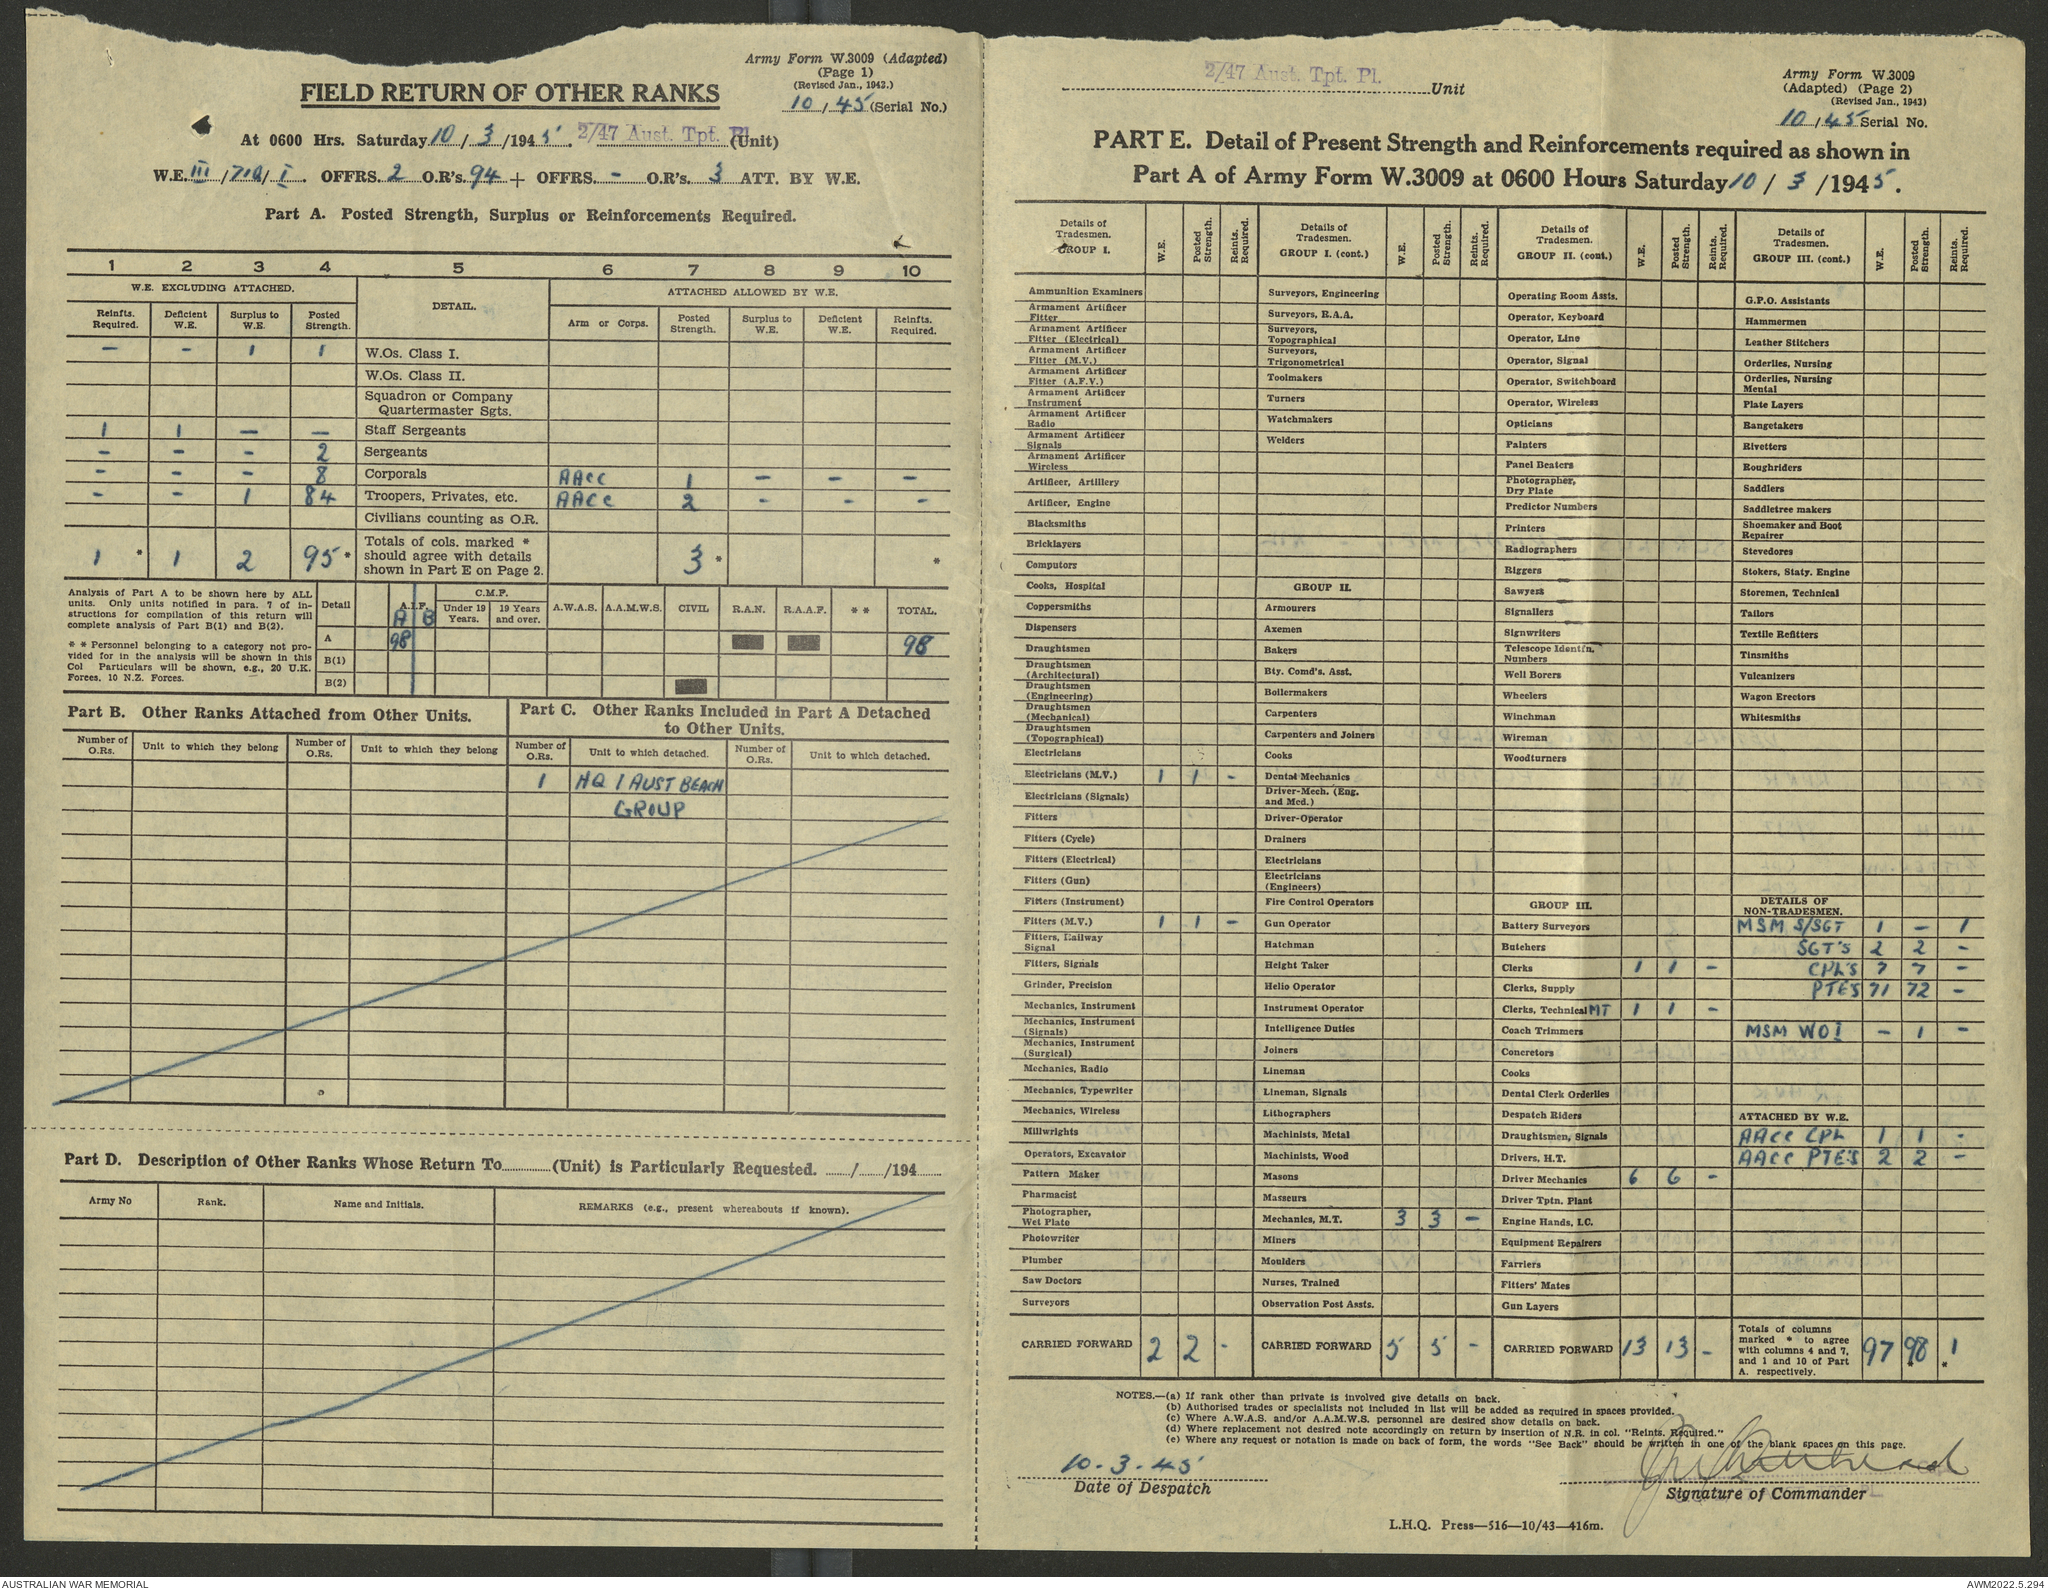 Army Form W.3009 (Adapted)
(Page 1)
(Revised Jan., 1943.)
10 / 45 (Serial No.)
FIELD RETURN OF OTHER RANKS
At 0600 Hrs. Saturday 10 / 3 /1945. 2/47 Aust. Tpt. Pl. (Unit)
W.E. III / 710 / I . OFFRS. 2 O.R's. 94 + OFFRS. - O.R's. 3 ATT. BY W.E.
Part A. Posted Strength, Surplus or Reinforcements Required.
1 2 3 4 5 6 7 8 9 10
W.E. EXCLUDING ATTACHED. DETAIL. ATTACHED ALLOWED BY W.E.
Reinfts. Required. Deficient W.E. Surplus to W.E. Posted Strength. Arm or Corps. Posted Strength. Surplus to W.E. Deficient W.E. Reinfts. Required.
- - 1 1 W.Os. Class I.
W.Os. Class II.
Squadron or Company
Quartermaster Sgts.
1 1 - - Staff Sergeants
- - - 2 Sergeants
- - - 8 Corporals AACC 1 - - -
- - 1 84 Troopers, Privates, etc. AACC 2 - - -
Civilians counting as O.R.
1 * 1 2 95 * Totals of cols. marked * should agree with details shown in Part E on Page 2. 3 * *
Analysis of Part A to be shown here by ALL
units. Only units notified in para. 7 of in-
structions for compilation of this return will
complete analysis of Part B(1) and B(2).
* * Personnel belonging to a category not pro-
vided for in the analysis will be shown in this
Col Particulars will be shown, e.g., 20 U.K.
Forces, 10 N.Z. Forces.
Detail A.I.F. A B C.M.F. Under 19 Years. 19 Years and over. A.W.A.S. A.A.M.W.S. CIVIL R.A.N. R.A.A.F. * * TOTAL.
A 98 98
B(1)
B(2)
Part B. Other Ranks Attached from Other Units.
Part C. Other Ranks Included in Part A Detached
to Other Units.
Number of O.Rs. Unit to which they belong Number of O.Rs. Unit to which they belong Number of O.Rs. Unit to which detached. Number of O.Rs. Unit to which detached.
1 HQ 1 AUST BEACH
GROUP
Part D. Description of Other Ranks Whose Return To (Unit) is Particularly Requested. / /194
Army No Rank. Name and Initials. REMARKS (e.g., present whereabouts if known).
2/47 Aust. Tpt. Pl. Unit
Army Form W.3009
(Adapted) (Page 2)
(Revised Jan., 1943)
10 / 45 Serial No.
PART E. Detail of Present Strength and Reinforcements required as shown in
Part A of Army Form W.3009 at 0600 Hours Saturday 10 / 3 /1945.
Details of Tradesmen. GROUP I. W.E. Posted Strength. Reints. Required.
Ammunition Examiners
Armament Artificer Fitter
Armament Artificer Fitter (Electrical)
Armament Artificer Fitter (M.V.)
Armament Artificer Fitter (A.F.V.)
Armament Artificer Instrument
Armament Artificer Radio
Armament Artificer Signals
Armament Artificer Wireless
Artificer, Artillery
Artificer, Engine
Blacksmiths
Bricklayers
Computors
Cooks, Hospital
Coppersmiths
Dispensers
Draughtsmen
Draughtsmen (Architectural)
Draughtsmen (Engineering)
Draughtsmen (Mechanical)
Draughtsmen (Topographical)
Electricians
Electricians (M.V.) 1 1 -
Electricians (Signals)
Fitters
Fitters (Cycle)
Fitters (Electrical)
Fitters (Gun)
Fitters (Instrument)
Fitters (M.V.) 1 1 -
Fitters, Railway Signal
Fitters, Signals
Grinder, Precision
Mechanics, Instrument
Mechanics, Instrument (Signals)
Mechanics, Instrument (Surgical)
Mechanics, Radio
Mechanics, Typewriter
Mechanics, Wireless
Millwrights
Operators, Excavator
Pattern Maker
Pharmacist
Photographer, Wet Plate
Photowriter
Plumber
Saw Doctors
Surveyors
CARRIED FORWARD 2 2 -
Details of Tradesmen. GROUP I. (cont.) W.E. Posted Strength. Reints. Required.
Surveyors, Engineering
Surveyors, R.A.A.
Surveyors, Topographical
Surveyors, Trigonometrical
Toolmakers
Turners
Watchmakers
Welders
GROUP II.
Armourers
Axemen
Bakers
Bty. Comd's. Asst.
Boilermakers
Carpenters
Carpenters and Joiners
Cooks
Dental Mechanics
Driver-Mech. (Eng. and Med.)
Driver-Operator
Drainers
Electricians
Electricians (Engineers)
Fire Control Operators
Gun Operator
Hatchman
Height Taker
Helio Operator
Instrument Operator
Intelligence Duties
Joiners
Lineman
Lineman, Signals
Lithographers
Machinists, Metal
Machinists, Wood
Masons
Masseurs
Mechanics, M.T. 3 3 -
Miners
Moulders
Nurses, Trained
Observation Post Assts.
CARRIED FORWARD 5 5 -
Details of Tradesmen. GROUP II. (cont.) W.E. Posted Strength. Reints. Required.
Operating Room Assts.
Operator, Keyboard
Operator, Line
Operator, Signal
Operator, Switchboard
Operator, Wireless
Opticians
Painters
Panel Beaters
Photographer, Dry Plate
Predictor Numbers
Printers
Radiographers
Riggers
Sawyers
Signallers
Signwriters
Telescope Identfn. Numbers
Well Borers
Wheelers
Winchman
Wireman
Woodturners
GROUP III.
Battery Surveyors
Butchers
Clerks 1 1 -
Clerks, Supply
Clerks, Technical MT 1 1 -
Coach Trimmers
Concretors
Cooks
Dental Clerk Orderlies
Despatch Riders
Draughtsmen, Signals
Drivers, H.T.
Driver Mechanics 6 6 -
Driver Tptn. Plant
Engine Hands, I.C.
Equipment Repairers
Farriers
Fitters' Mates
Gun Layers
CARRIED FORWARD 13 13 -
Details of Tradesmen. GROUP III. (cont.) W.E. Posted Strength. Reints. Required.
G.P.O. Assistants
Hammermen
Leather Stitchers
Orderlies, Nursing
Orderlies, Nursing Mental
Plate Layers
Rangetakers
Rivetters
Roughriders
Saddlers
Saddletree makers
Shoemaker and Boot Repairer
Stevedores
Stokers, Staty. Engine
Storemen, Technical
Tailors
Textile Refitters
Tinsmiths
Vulcanizers
Wagon Erectors
Whitesmiths
DETAILS OF NON-TRADESMEN.
MSM S/SGT 1 - 1
SGT'S 2 2 -
CPL'S 7 7 -
PTE'S 71 72 -
MSM WO I - 1 -
ATTACHED BY W.E.
AACC CPL 1 1 -
AACC PTE'S 2 2 -
Totals of columns marked * to agree with columns 4 and 7, and 1 and 10 of Part A. respectively. 97 98 * 1 *
NOTES.—(a) If rank other than private is involved give details on back.
(b) Authorised trades or specialists not included in list will be added as required in spaces provided.
(c) Where A.W.A.S. and/or A.A.M.W.S. personnel are desired show details on back.
(d) Where replacement not desired note accordingly on return by insertion of N.R. in col. "Reints. Required."
(e) Where any request or notation is made on back of form, the words "See Back" should be written in one of the blank spaces on this page.
10-3-45
Date of Despatch
Signature of Commander
L.H.Q. Press—516—10/43—416m.
AUSTRALIAN WAR MEMORIAL
AWM2022.5.294